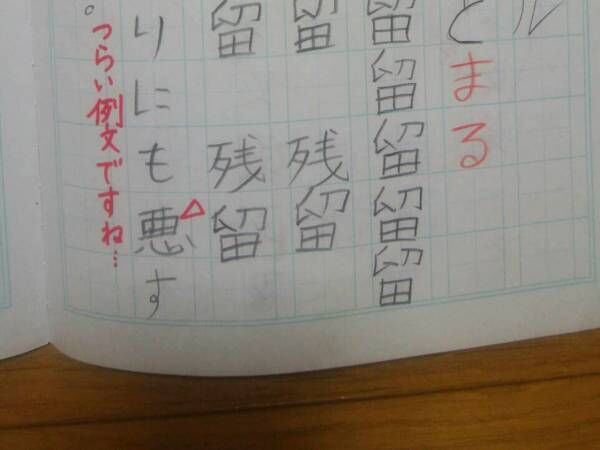 ル
とまる
留留留留留
留 残留
留 残留
りにも悪す
。
つらい例文ですね…